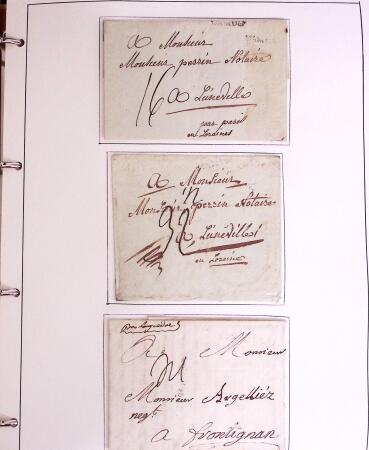 A Monsieur
Monsieur perrin Notaire
16 A Lunéville
par paris
en Loraines
A Monsieur
Monsieur perrin Notaire
A Lunéville
en Loraine
A Monsieur
Monsieur Argelliéz
negt
a frontignan